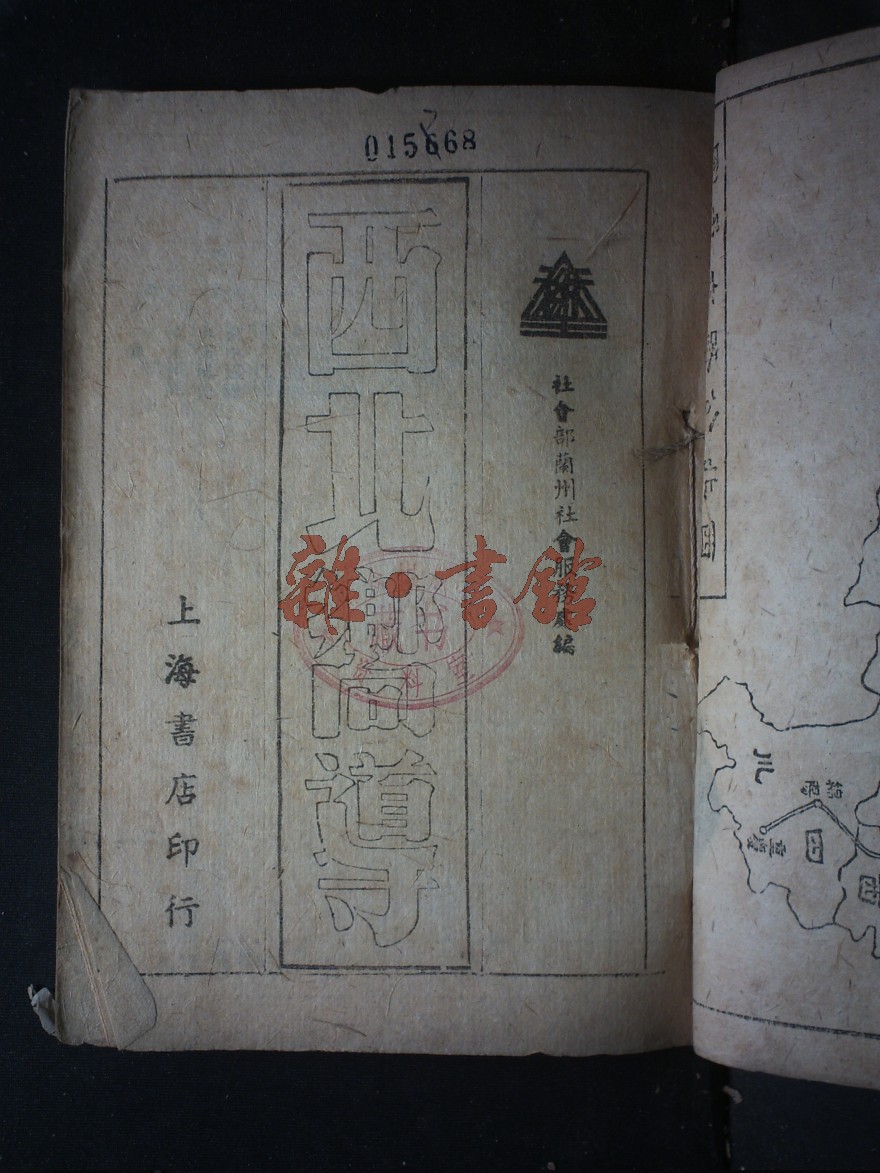 015668
社會部蘭州社會服務處編
西北嚮導
上海書店印行
雜·書館